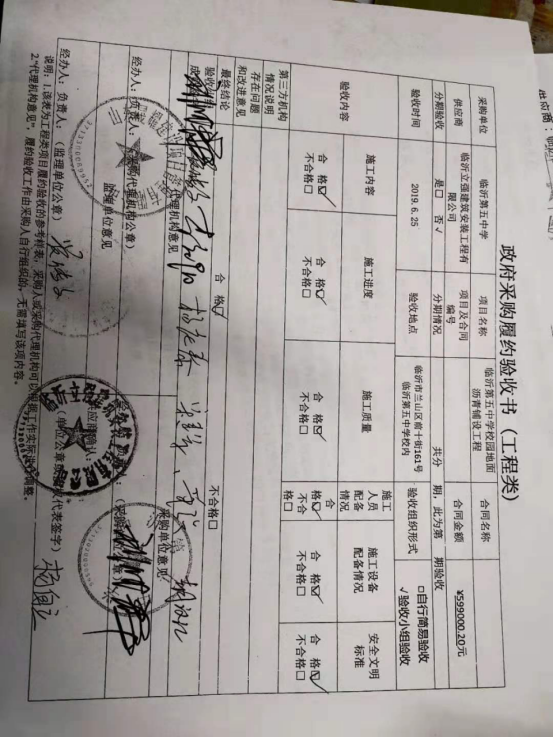 政府采购履约验收书（工程类）
采购单位 临沂第五中学 项目名称 临沂第五中学校园地面沥青铺设工程 合同名称
供应商 临沂立强建筑安装工程有限公司 项目及合同编号 合同金额 ¥599000.20元
分期验收 是□ 否√ 分期情况 共分 期，此为第 期验收
验收时间 2019.6.25 验收地点 临沂市兰山区前十街161号临沂第五中学校内 验收组织形式 □自行简易验收
√验收小组验收
验收内容 施工内容 施工进度 施工质量 施工人员配备情况 施工设备配备情况 安全文明标准
合 格☑ 合 格☑ 合 格☑ 合格☑ 合 格☑ 合 格☑
不合格□ 不合格□ 不合格□ 不合格□ 不合格□ 不合格□
第三方机构情况说明
存在问题和改进意见
最终结论 合 格☑ 不合格□
验收小组成员
代理机构意见 采购单位意见
经办人、负责人：（采购代理机构公章）
监理单位意见
经办人：负责人：（监理单位公章）
说明：1.该表为工程类项目履约验收的参考样表，采购人或采购代理机构可以根据工作实际进行调整。
2.“代理机构意见”，履约验收工作由采购人自行组织的，无需填写该项内容。